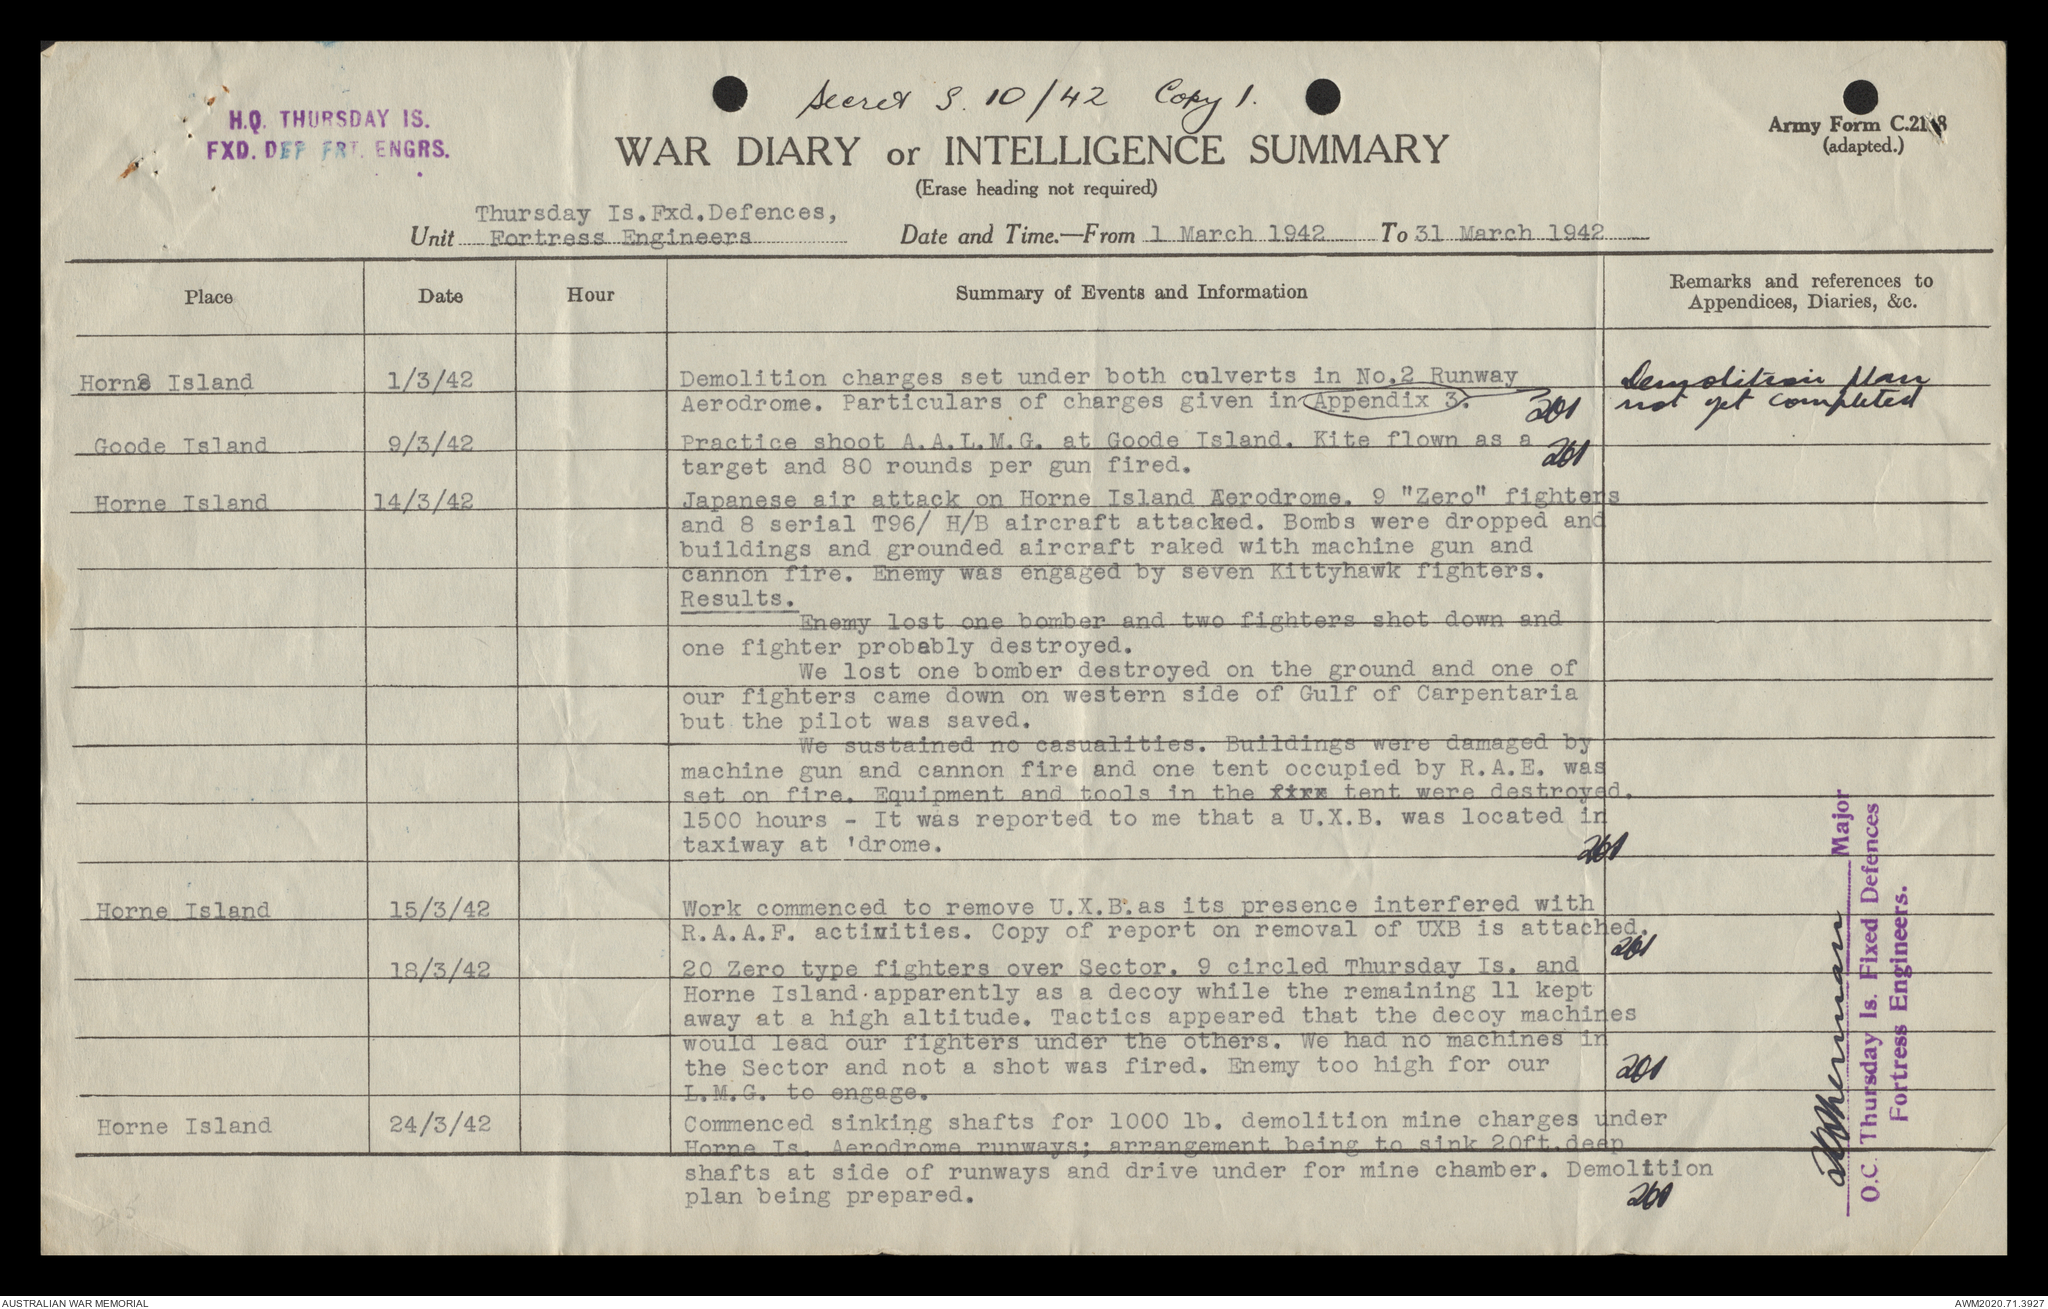 Secret S. 10/42 Copy 1.
H.Q. THURSDAY IS.
FXD. DEF FRT. ENGRS.
WAR DIARY or INTELLIGENCE SUMMARY
(Erase heading not required)
Army Form C.2118
(adapted.)
Thursday Is.Fxd.Defences,
Unit Fortress Engineers Date and Time.—From 1 March 1942 To 31 March 1942
Place Date Hour Summary of Events and Information Remarks and references to
Appendices, Diaries, &c.
Horne Island 1/3/42 Demolition charges set under both culverts in No.2 Runway Demolition plan
Aerodrome. Particulars of charges given in Appendix 3. not yet completed
Goode Island 9/3/42 Practice shoot A.A.L.M.G. at Goode Island. Kite flown as a
target and 80 rounds per gun fired.
Horne Island 14/3/42 Japanese air attack on Horne Island Aerodrome. 9 "Zero" fighters
and 8 serial T96/ H/B aircraft attacked. Bombs were dropped and
buildings and grounded aircraft raked with machine gun and
cannon fire. Enemy was engaged by seven Kittyhawk fighters.
Results.
Enemy lost one bomber and two fighters shot down and
one fighter probably destroyed.
We lost one bomber destroyed on the ground and one of
our fighters came down on western side of Gulf of Carpentaria
but the pilot was saved.
We sustained no casualities. Buildings were damaged by
machine gun and cannon fire and one tent occupied by R.A.E. was
set on fire. Equipment and tools in the tent were destroyed.
1500 hours - It was reported to me that a U.X.B. was located in
taxiway at 'drome.
Horne Island 15/3/42 Work commenced to remove U.X.B.as its presence interfered with
R.A.A.F. activities. Copy of report on removal of UXB is attached.
18/3/42 20 Zero type fighters over Sector. 9 circled Thursday Is. and
Horne Island apparently as a decoy while the remaining 11 kept
away at a high altitude. Tactics appeared that the decoy machines
would lead our fighters under the others. We had no machines in
the Sector and not a shot was fired. Enemy too high for our
L.M.G. to engage.
Horne Island 24/3/42 Commenced sinking shafts for 1000 lb. demolition mine charges under
Horne Is. Aerodrome runways; arrangement being to sink 20ft.deep
shafts at side of runways and drive under for mine chamber. Demolition
plan being prepared.
Major
O.C. Thursday Is. Fixed Defences
Fortress Engineers.
AUSTRALIAN WAR MEMORIAL AWM2020.71.3927